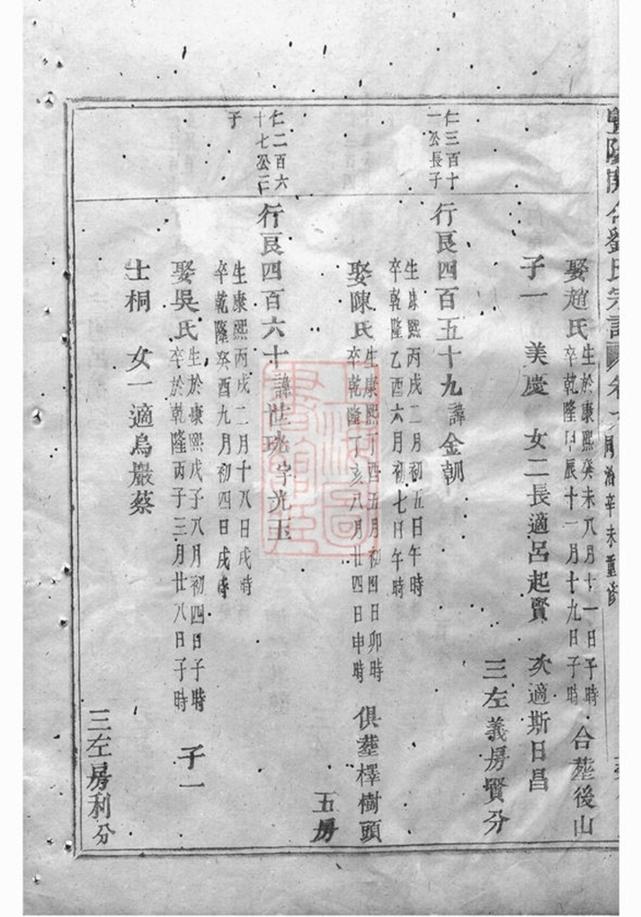 劉氏宗譜 卷
同治辛未重修
娶趙氏 生於康熙癸未八月十一日子時 合塟後山
卒乾隆甲辰十一月十九日子時
子一 美慶 女二長適呂起賢 次適斯日昌
三左義房賢分
仁三百十
一公長子
行艮四百五十九 諱金朝
生康熙丙戌二月初五日午時
卒乾隆乙酉六月初七日午時
娶陳氏 生康熙丁酉五月初四日卯時 俱塟檡樹頭
卒乾隆丁亥八月廿四日申時
五房
仁二百六
十七公三
子
行艮四百六十 諱世珖字光玉
生康熙丙戌二月十八日戌時
卒乾隆癸酉九月初四日戌時
娶吳氏 生於康熙戊子八月初四日子時 子一
卒於乾隆丙子三月廿八日子時
士桐 女一適烏巖蔡
三左房利分